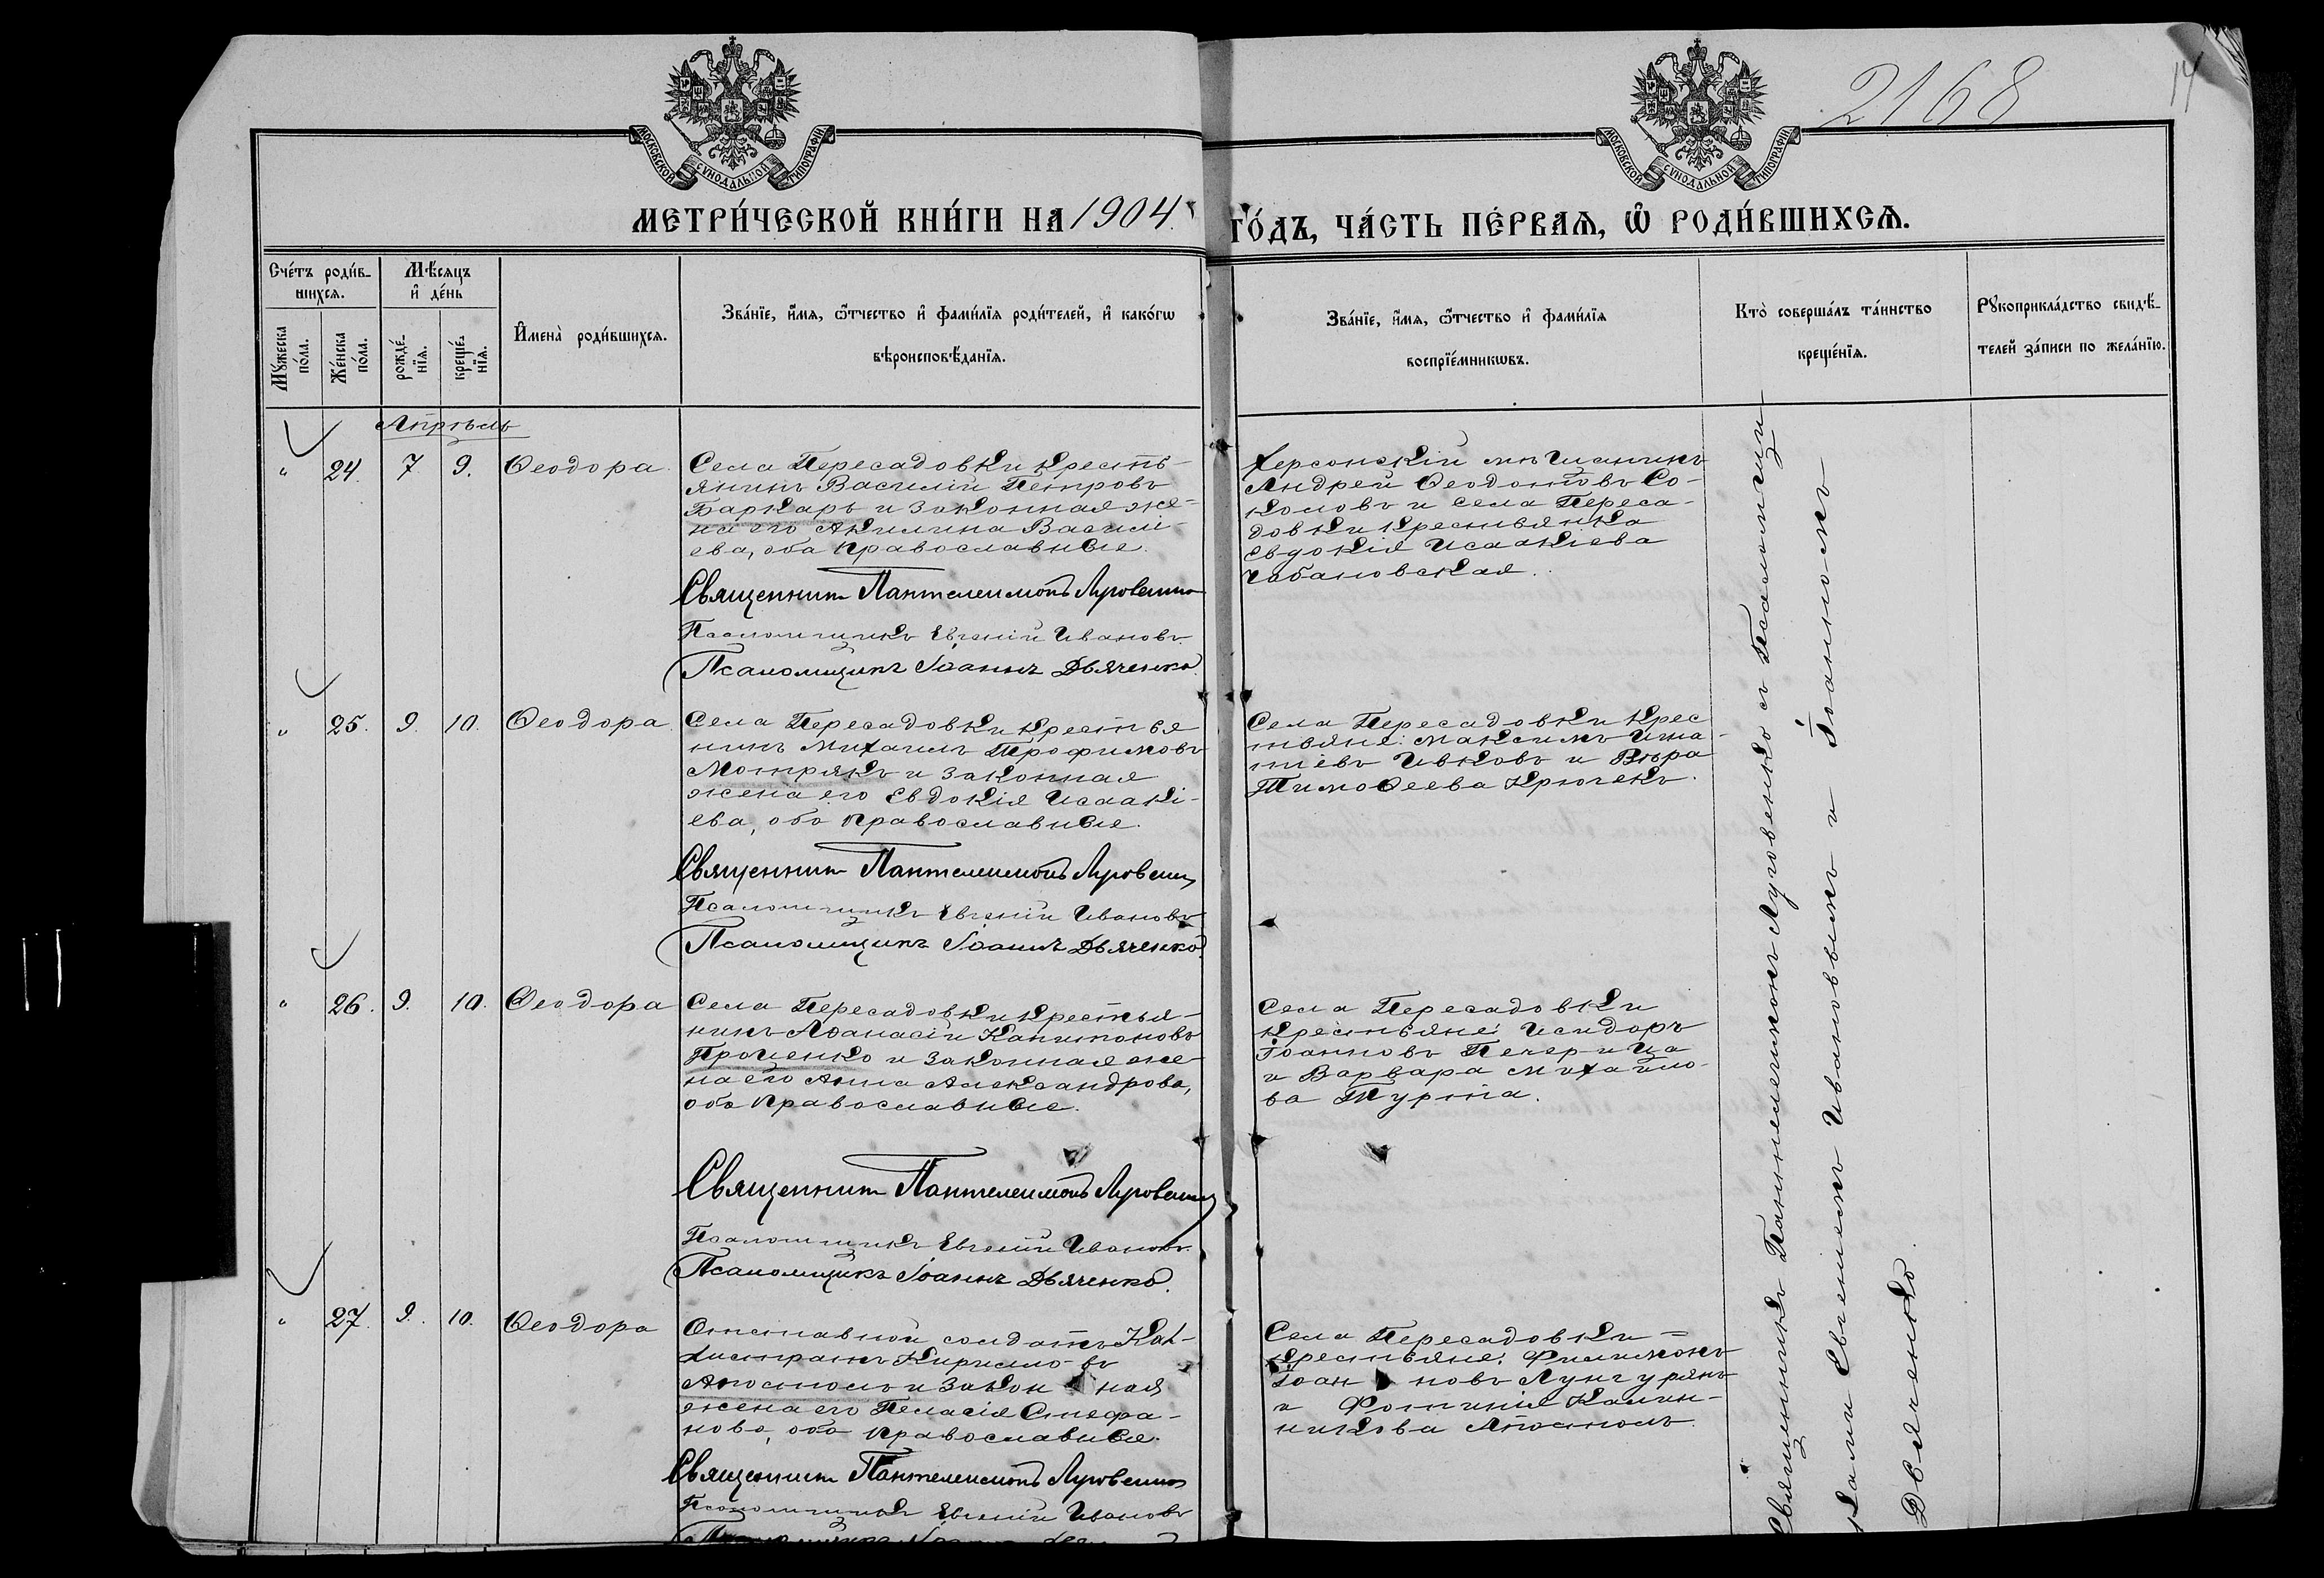 МОСКОВСКОЙ СѴНОДАЛЬНОЙ ТИПОГРАФІИ
МОСКОВСКОЙ СѴНОДАЛЬНОЙ ТИПОГРАФІИ
2168
14
МЕТРИ́ЧЕСКОЙ КНИ́ГИ НА 1904. ГО́ДЪ, ЧА́СТЬ ПЕ́РВАѦ, Ѡ҆ РОДИ́ВШИХСѦ.
Сче́тъ роди́в-
шихсѧ.
Мꙋ́жеска по́ла.
Же́нска по́ла.
Мѣ́сяцъ
и҆ де́нь
рожде́-
нїѧ.
креще́-
нїѧ.
И҆мена̀ роди́вшихсѧ.
Зва́нїе, и҆́мѧ, ѻ҆́тчество и҆ фами́лїѧ роди́телей, и҆ како́гѡ
вѣроисповѣ́данїѧ.
Зва́нїе, и҆́мѧ, ѻ҆́тчество и҆ фами́лїѧ
воспрїе́мникѡвъ.
Кто̀ соверша́лъ та́инство
креще́нїѧ.
Рꙋкоприкла́дство свидѣ́-
телей за́писи по жела́нїю.
Апрѣль
" 24. 7 9. Ѳеодора
Села Пересадовки кресть-
янинъ Василій Петровъ
Баркарь и законная же-
на его Акилина Василі-
ева, оба православные.
Священникъ Пантелеимонъ Луговенко
Псаломщикъ Евгеній Ивановъ.
Псаломщикъ Іоаннъ Дьяченко.
Херсонскій мѣщанинъ
Андрей Ѳеодотовъ Со-
коловъ и села Переса-
довки крестьянка
Евдокія Исаакіева
Чабановская.
" 25. 9. 10. Ѳеодора
Села Пересадовки крестья
нинъ Михаилъ Трофимовъ
Мотрякъ и законная
жена его Евдокія Исаакі-
ева, оба православные.
Священникъ Пантелеимонъ Луговенко
Псаломщикъ Евгеній Ивановъ
Псаломщикъ Іоаннъ Дьяченко.
Села Пересадовки крес
тьяне: Максимъ Игна-
тіевъ Ивковъ и Вѣра
Тимоѳеева Крючекъ.
" 26. 9. 10. Ѳеодора
Села Пересадовки крестья-
нинъ Аѳанасій Капитоновъ
Проценко и законная же-
на его Анна Александрова,
оба православные.
Священникъ Пантелеимонъ Луговенко
Псаломщикъ Евгеній Ивановъ
Псаломщикъ Іоаннъ Дьяченко.
Села Пересадовки
крестьяне: Исидоръ
Іоанновъ Печерица
и Варвара Михайло-
ва Турта.
" 27. 9. 10. Ѳеодора
Отставной солдатъ Кал-
листратъ Кирилло-въ
Апостолъ и закон ная
жена его Пелагія Стефа-
нова, оба православные.
Священникъ Пантелеимонъ Луговенко
Псаломщикъ Евгеній Ивановъ
Псаломщикъ Іоаннъ
Села Пересадовки =
крестьяне: Филимонъ
Іоан новъ Лунгулянъ
и Фотинія Калин-
никова Апостолъ.
Священникъ Пантелеимонъ Луговенко съ Псаломщи
ками Евгеніемъ Ивановымъ и Іоанномъ
Дьяченко.